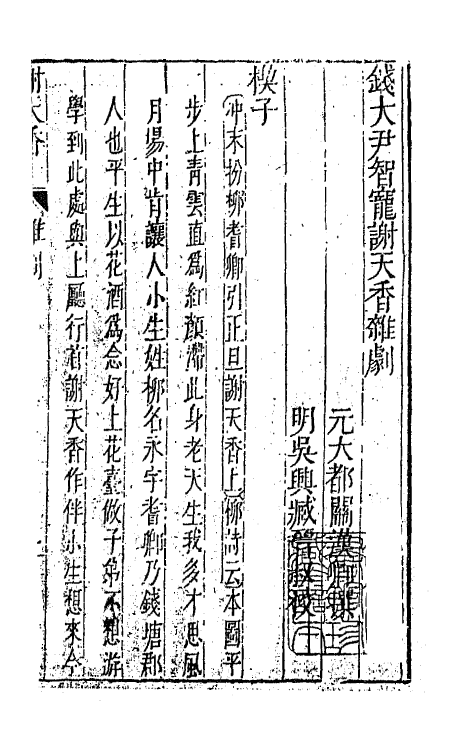 錢大尹智寵謝天香雜劇
元大都關漢卿撰
明吳興臧晉叔校
楔子
(冲末扮柳耆卿引正旦謝天香上)(柳詩云)本圖平
步上青雲直爲紅顏滯此身老天生我多才思風
月塲中肯讓人小生姓柳名永字耆卿乃錢塘郡
人也平生以花酒爲念好上花臺做子弟不想游
學到此處與上廳行首謝天香作伴小生想來今
謝天香 雜劇